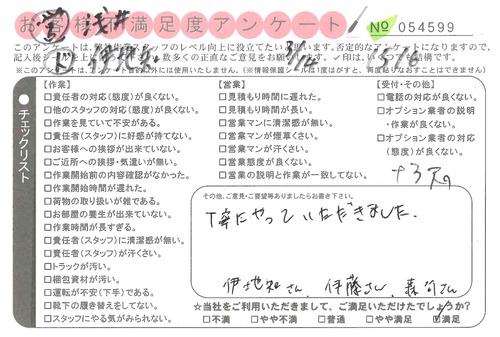 お客様満足度アンケート
№ 054599
営 浅井
ド 伊地知
3/12
1576
このアンケートは、
スタッフのレベル向上に役立てたい
思います。否定的なアンケートになりますので、
数多くの正直なご意見をお願
✓印は、
結構です。
【作業】
□責任者の対応(態度)が良くない。
□他のスタッフの対応(態度)が良くない。
□作業を見ていて不安がある。
□責任者(スタッフ)に好感が持てない。
□お客様への挨拶が出来ていない。
□ご近所への挨拶・気遣いが無い。
□作業開始前の内容確認がなかった。
□作業開始時間が遅れた。
□荷物の取り扱いが雑である。
□お部屋の養生が出来ていない。
□作業時間が長すぎる。
□責任者(スタッフ)に清潔感が無い。
□責任者(スタッフ)が汗くさい。
□トラックが汚い。
□梱包資材が汚い。
□運転が不安(下手)である。
□靴下の履き替えをしてない。
□スタッフにやる気がみられない。
【営業】
□見積もり時間に遅れた。
□見積もり時間が長い。
□営業マンに清潔感が無い。
□営業マンが煙草くさい。
□営業マンが汗くさい。
□営業態度が良くない。
□営業の説明と作業が一致してない。
【受付・その他】
□電話の対応が良くない。
□オプション業者の説明
・作業が良くない。
□オプション業者の対応
(態度)が良くない。
チェックリスト
その他、ご意見・ご要望等ありましたらお書き下さい。
丁寧にやっていただきました。
伊地知さん 伊藤さん 森司さん
★当社をご利用いただきまして、ご満足いただけたでしょうか?
□不満 □やや不満 □普通 □やや満足 ☑満足